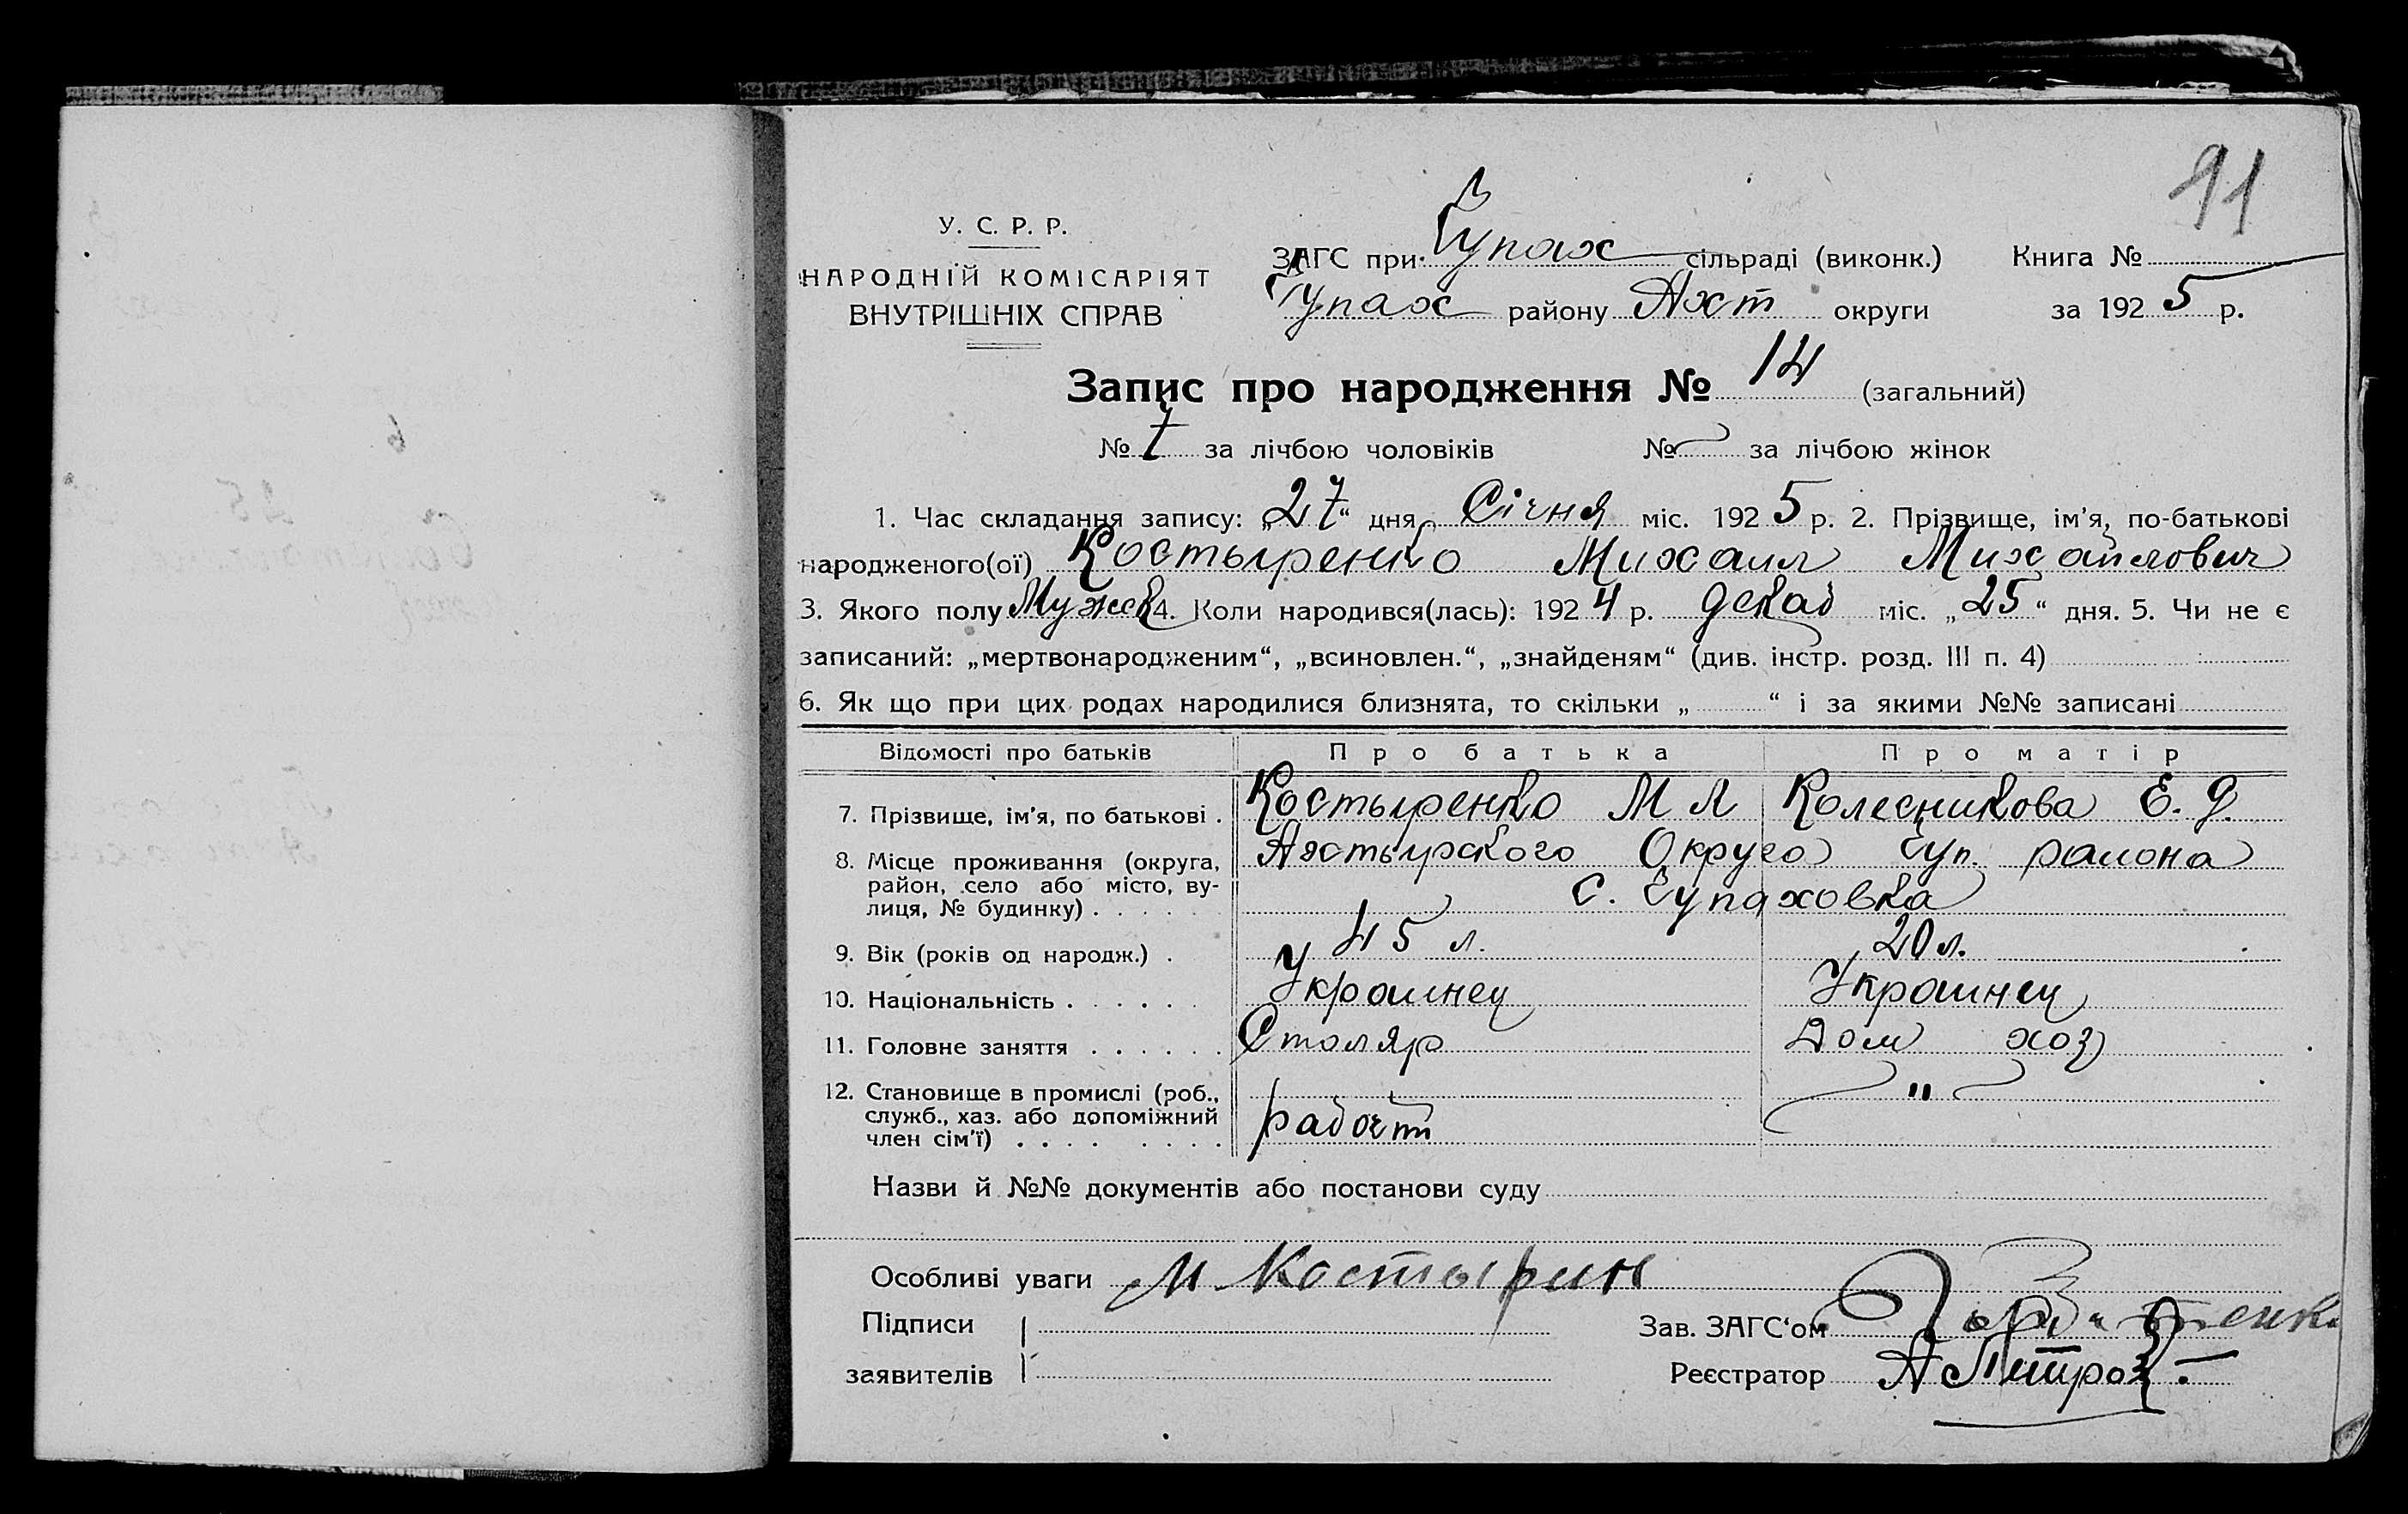 91
У. С. Р. Р.
НАРОДНІЙ КОМІСАРІЯТ
ВНУТРІШНІХ СПРАВ
ЗАГС при Чупах сільраді (виконк.) Книга №
Чупах району Ахт округи за 1925 р.
Запис про народження № 14 (загальний)
№ 7 за лічбою чоловіків № за лічбою жінок
1. Час складання запису: „27“ дня Січня міс. 1925 р. 2. Прізвище, ім'я, по-батькові
народженого(ої) Костыренко Михаил Михайлович
3. Якого полу Мужск 4. Коли народився(лась): 1924 р. декаб міс. „25“ дня. 5. Чи не є
записаний: „мертвонародженим“, „всиновлен.“, „знайденям“ (див. інстр. розд. III п. 4)
6. Як що при цих родах народилися близнята, то скільки „ “ і за якими №№ записані
Відомості про батьків Про батька Про матір
7. Прізвище, ім'я, по батькові . Костыренко М Л Колесникова Е. Д.
8. Місце проживання (округа, Ахтырского Округа Чуп. района
район, село або місто, ву-
лиця, № будинку) . . . . . . с. Чупаховка
9. Вік (років од народж.) . 45 л. 20 л.
10. Національність . . . . . . Украинец Украинец
11. Головне заняття . . . . . . Столяр Дом хоз
12. Становище в промислі (роб., "
служб., хаз. або допоміжний
член сім'ї) . . . . . . . . рабочт
Назви й №№ документів або постанови суду
Особливі уваги М Костырин
Підписи
Зав. ЗАГС‘ом
заявителів
Реєстратор А Петров